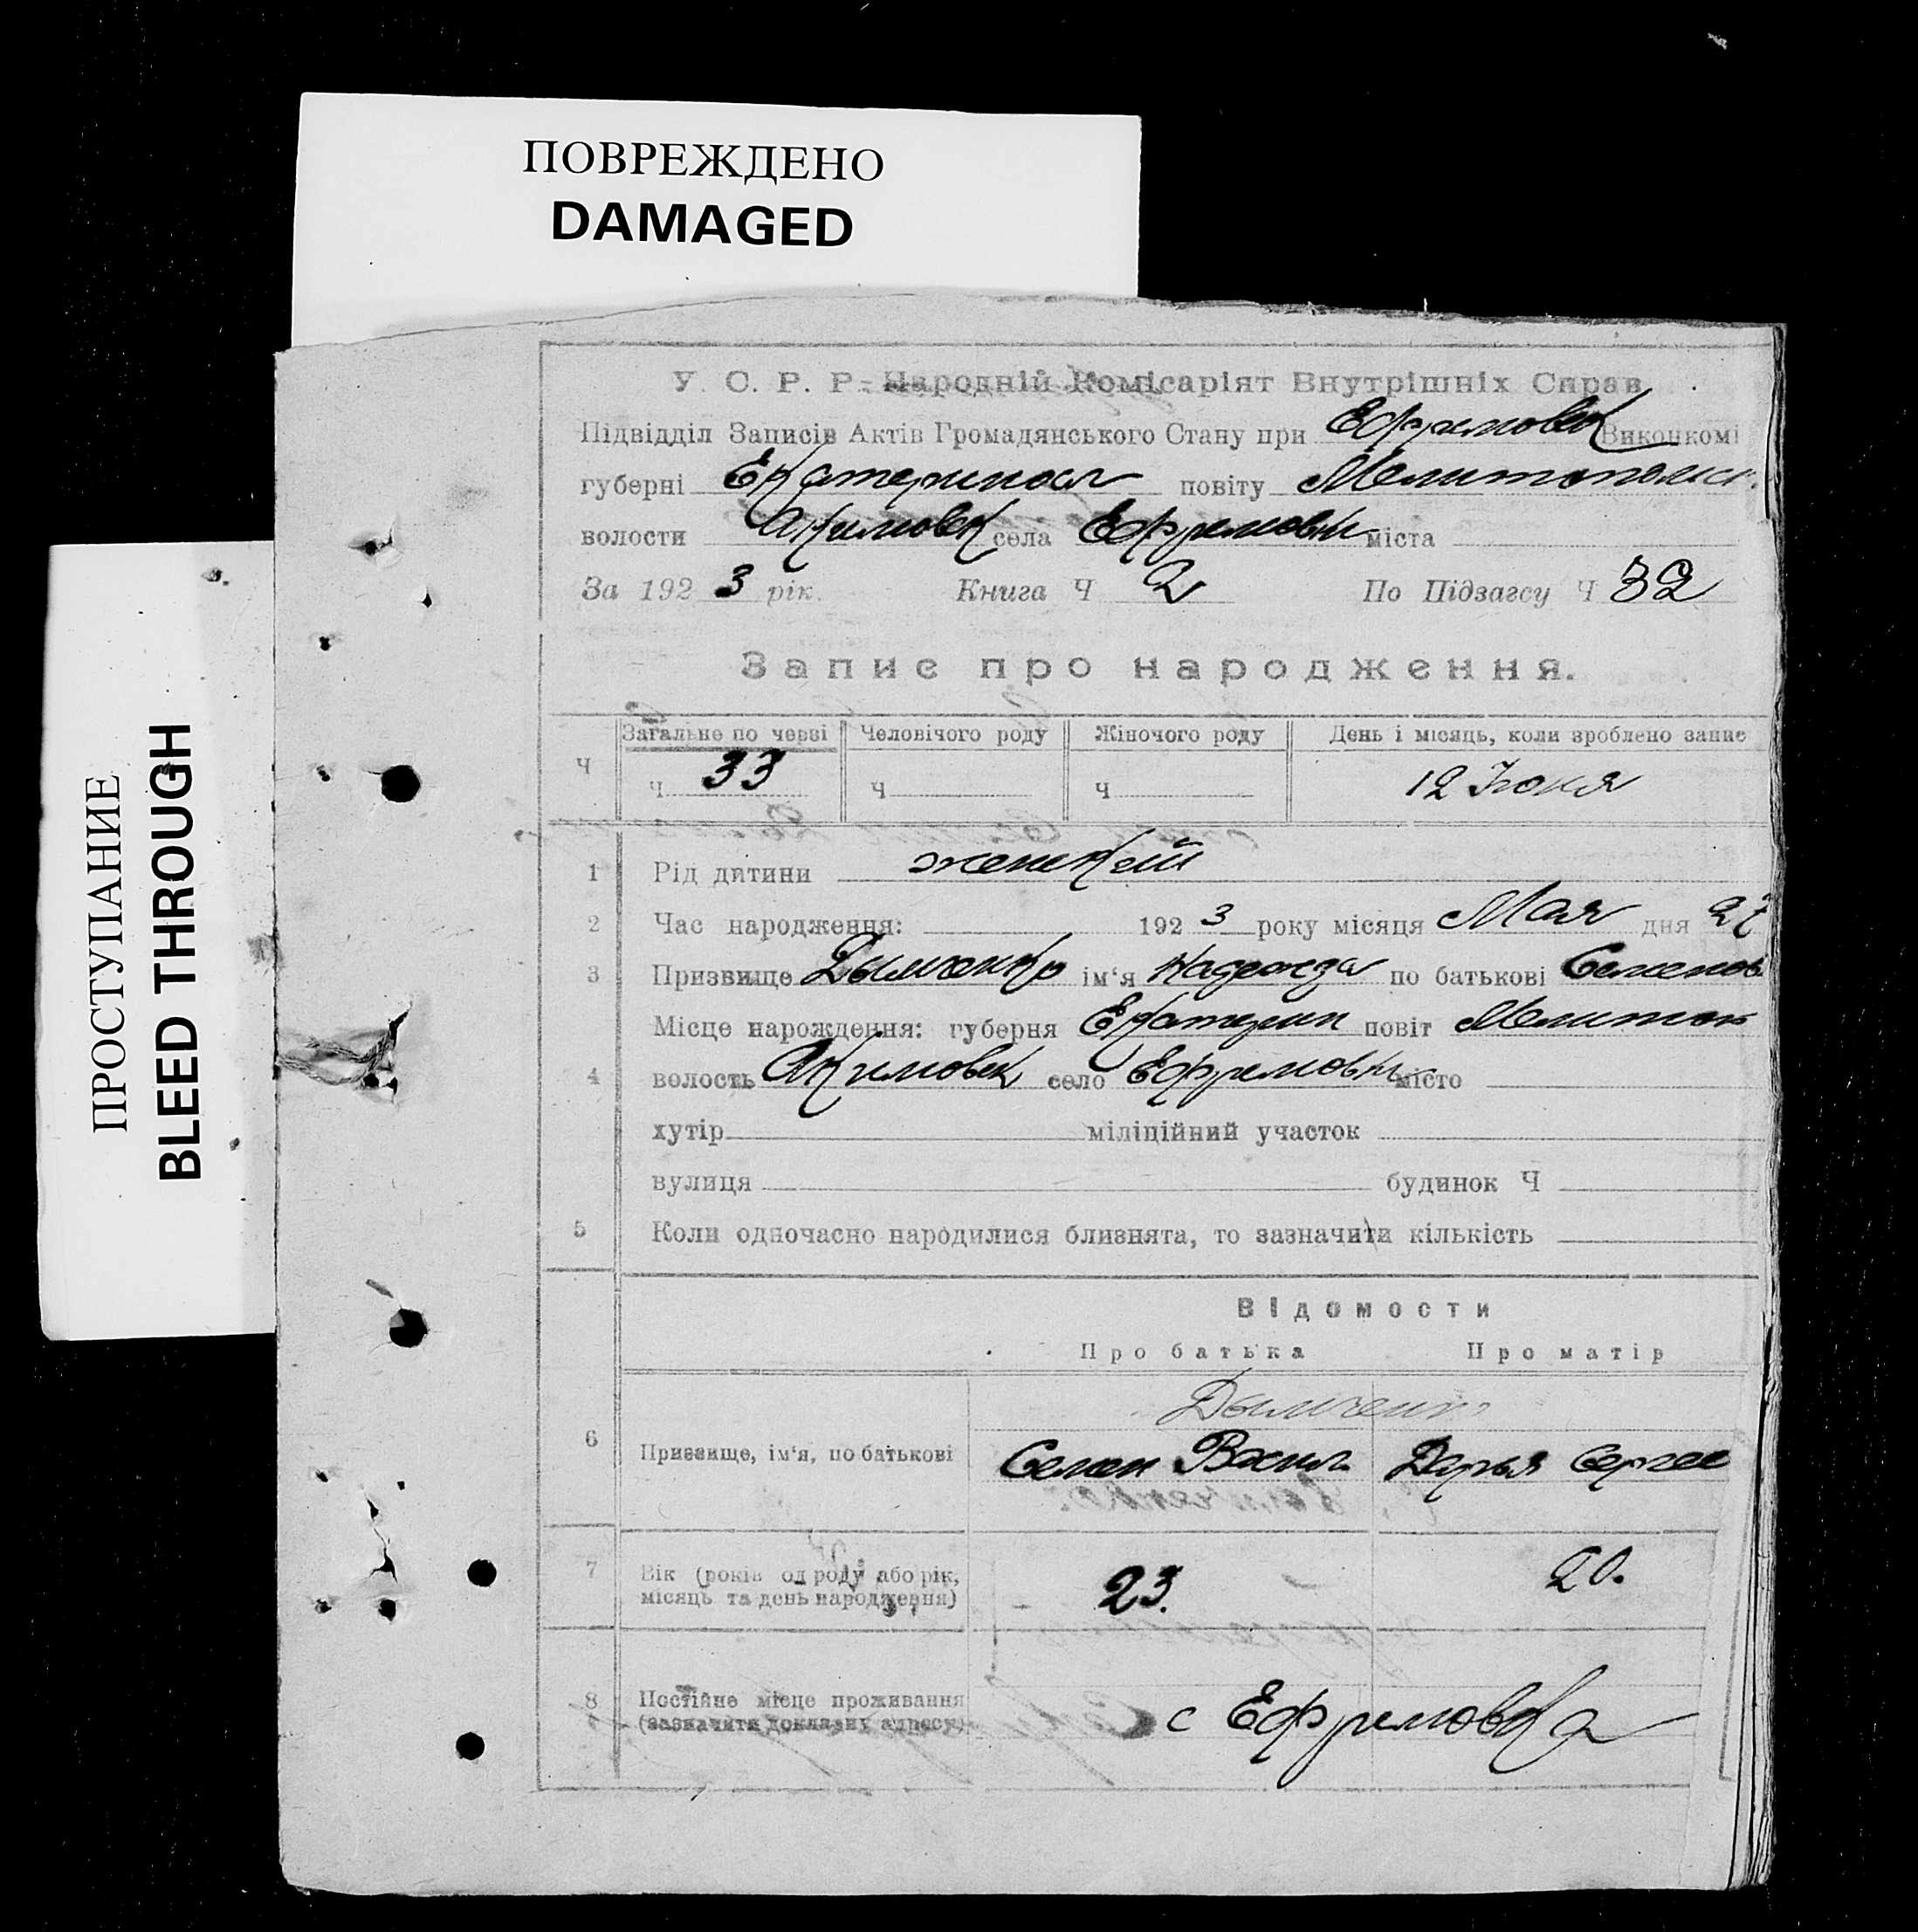 ПОВРЕЖДЕНО
DAMAGED
ПРОСТУПАНИЕ
BLEED THROUGH
У. С. Р. Р. Народній Комісаріят Внутрішніх Справ
Підвідділ Записів Актів Громадянського Стану при Ефремовск Виконкомі
губерні Екатеринос повіту Мелитопольск
волости Акимовск села Ефремовки міста
За 1923 рік. Книга Ч 2 По Підзагсу Ч 32
Запис про народження.
Ч Загальне по черзі Человічого роду Жіночого роду День і місяць, коли зроблено запис
Ч 33 Ч Ч 12 Июня
1 Рід дитини женский
2 Час народження: 1923 року місяця Мая дня 27
3 Призвище Дымченко ім'я Надежда по батькові Семенов
Місце народження: губерня Екатерин повіт Мелитоп
4 волость Акимовск село Ефремовки місто
хутір міліційний участок
вулиця будинок Ч
5 Коли одночасно народилися близнята, то зазначити кількість
Відомости
Про батька Про матір
Дымченко
6 Призвище, ім'я, по батькові Семен Васил. Дарья Сергее
7 Вік (років од роду або рік, місяць та день народження) 23. 20.
8 Постійне місце проживання (зазначити докладну адресу) с Ефремовка